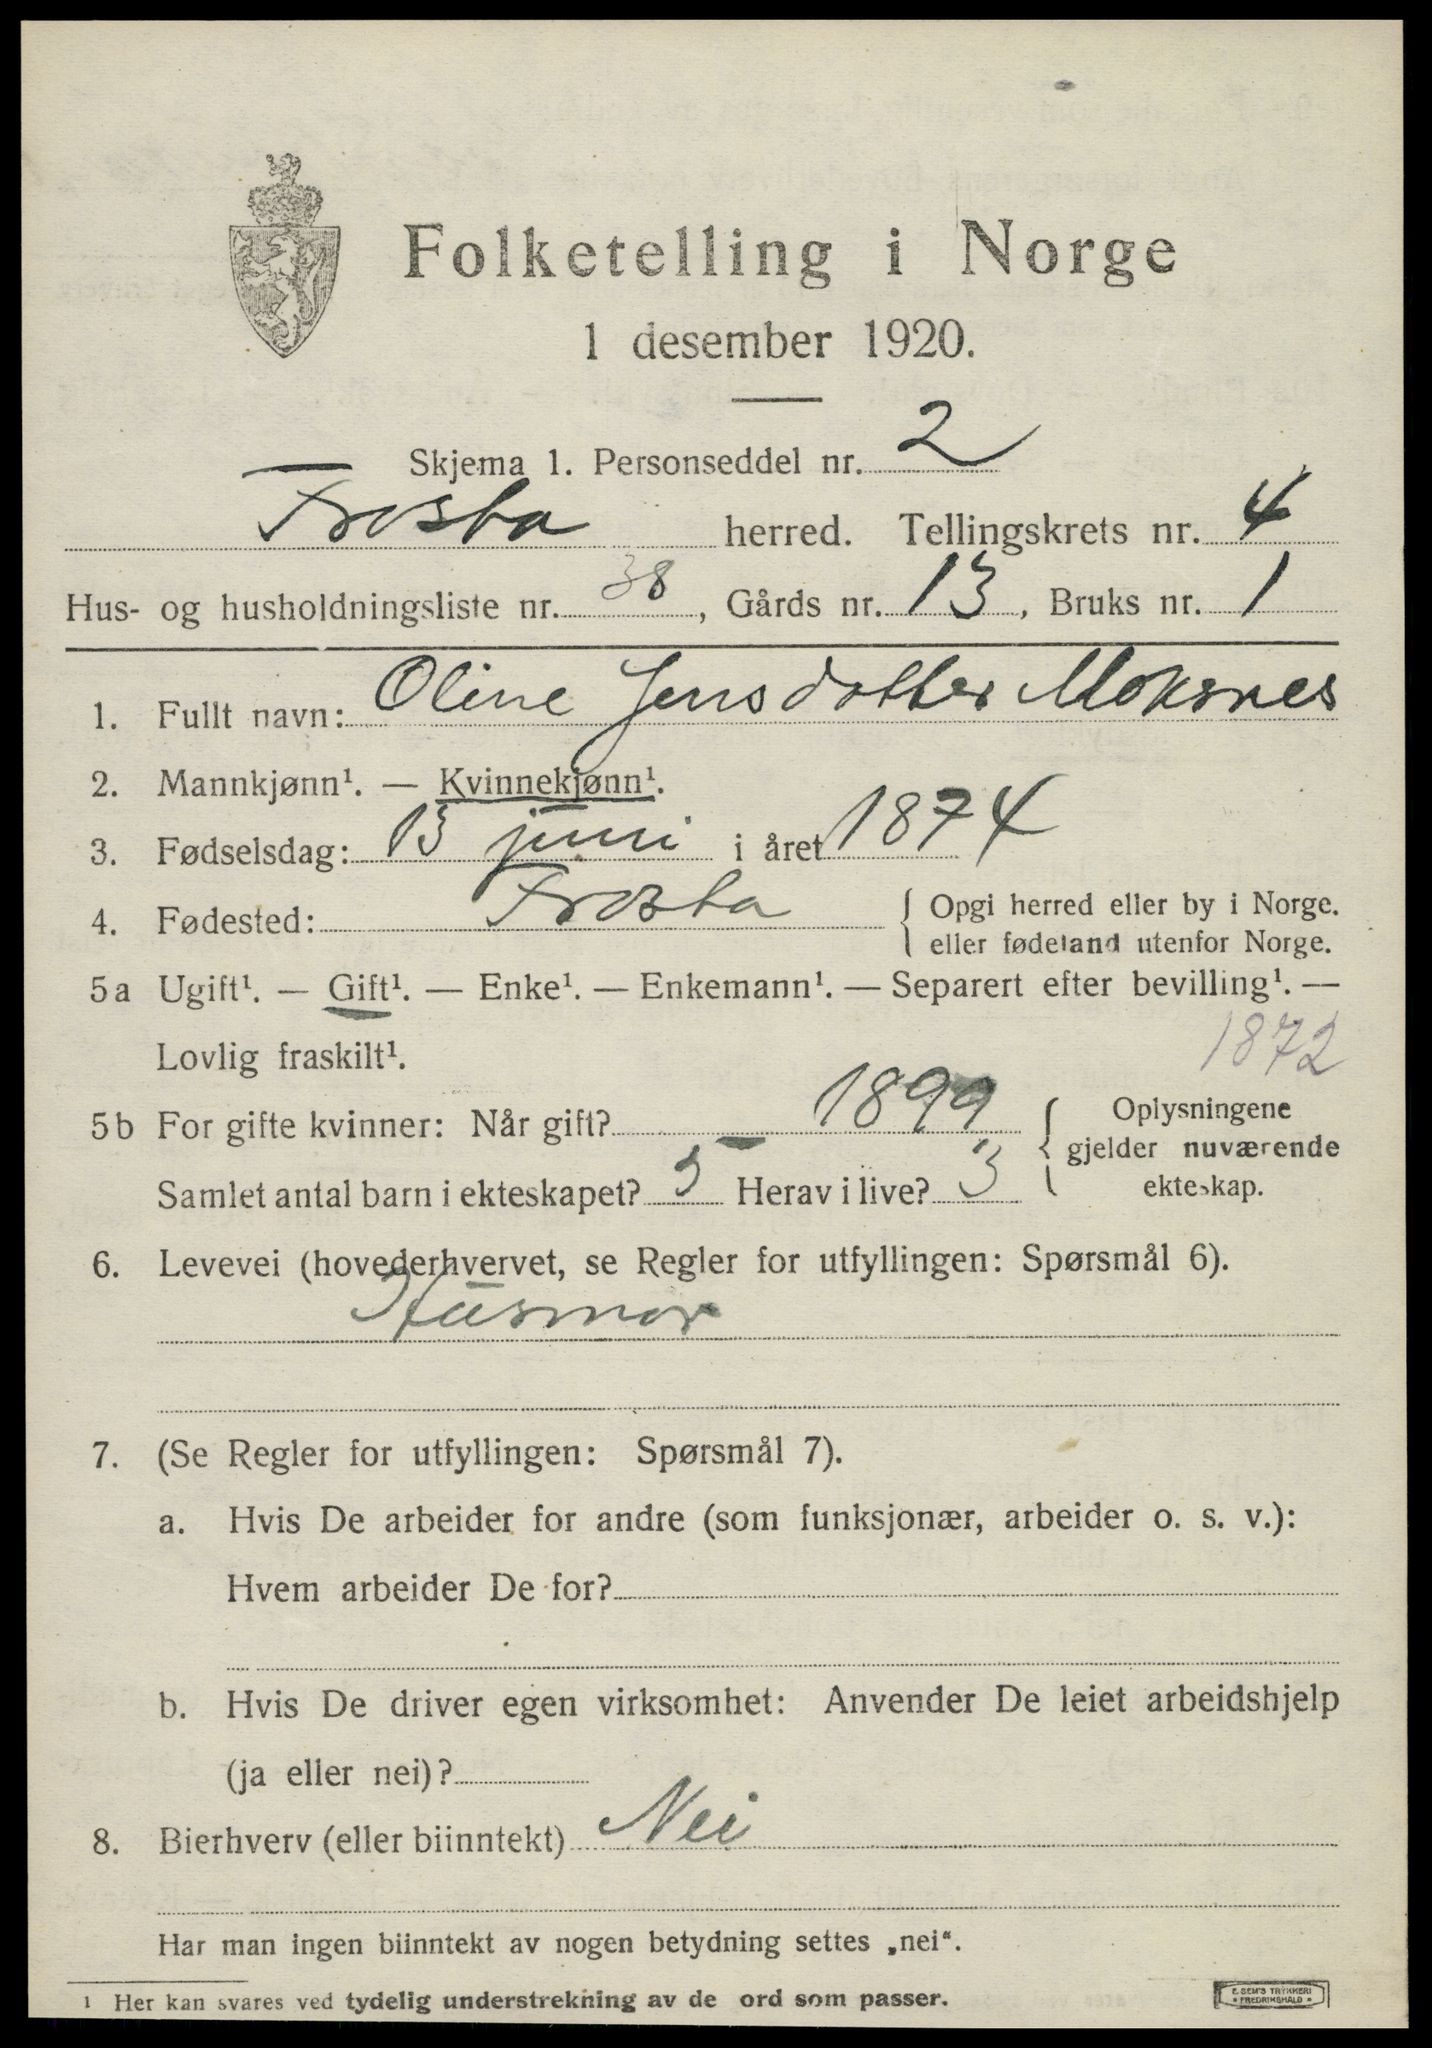 Folketelling i Norge
1 desember 1920.
Skjema 1. Personseddel nr. 2
Frosta herred. Tellingskrets nr. 4
Hus- og husholdningsliste nr. 38, Gårds nr. 13, Bruks nr. 1
1. Fullt navn: Oline Jensdotter Moksnes
2. Mannkjønn¹. — Kvinnekjønn¹.
3. Fødselsdag: 13 juni i året 1874
4. Fødested: Frosta { Opgi herred eller by i Norge.
eller fødeland utenfor Norge.
5a Ugift¹. — Gift¹. — Enke¹. — Enkemann¹. — Separert efter bevilling¹. —
Lovlig fraskilt¹.
1872
5b For gifte kvinner: Når gift? 1899
Samlet antal barn i ekteskapet? 5 Herav i live? 3
Oplysningene
gjelder nuværende
ekteskap.
6. Levevei (hovederhvervet, se Regler for utfyllingen: Spørsmål 6).
Husmor
7. (Se Regler for utfyllingen: Spørsmål 7).
a. Hvis De arbeider for andre (som funksjonær, arbeider o. s. v.):
Hvem arbeider De for?
b. Hvis De driver egen virksomhet: Anvender De leiet arbeidshjelp
(ja eller nei)?
8. Bierhverv (eller biinntekt) Nei
Har man ingen biinntekt av nogen betydning settes „nei“.
1 Her kan svares ved tydelig understrekning av de ord som passer.
E. SEM'S TRYKKERI
• FREDRIKSHALD •